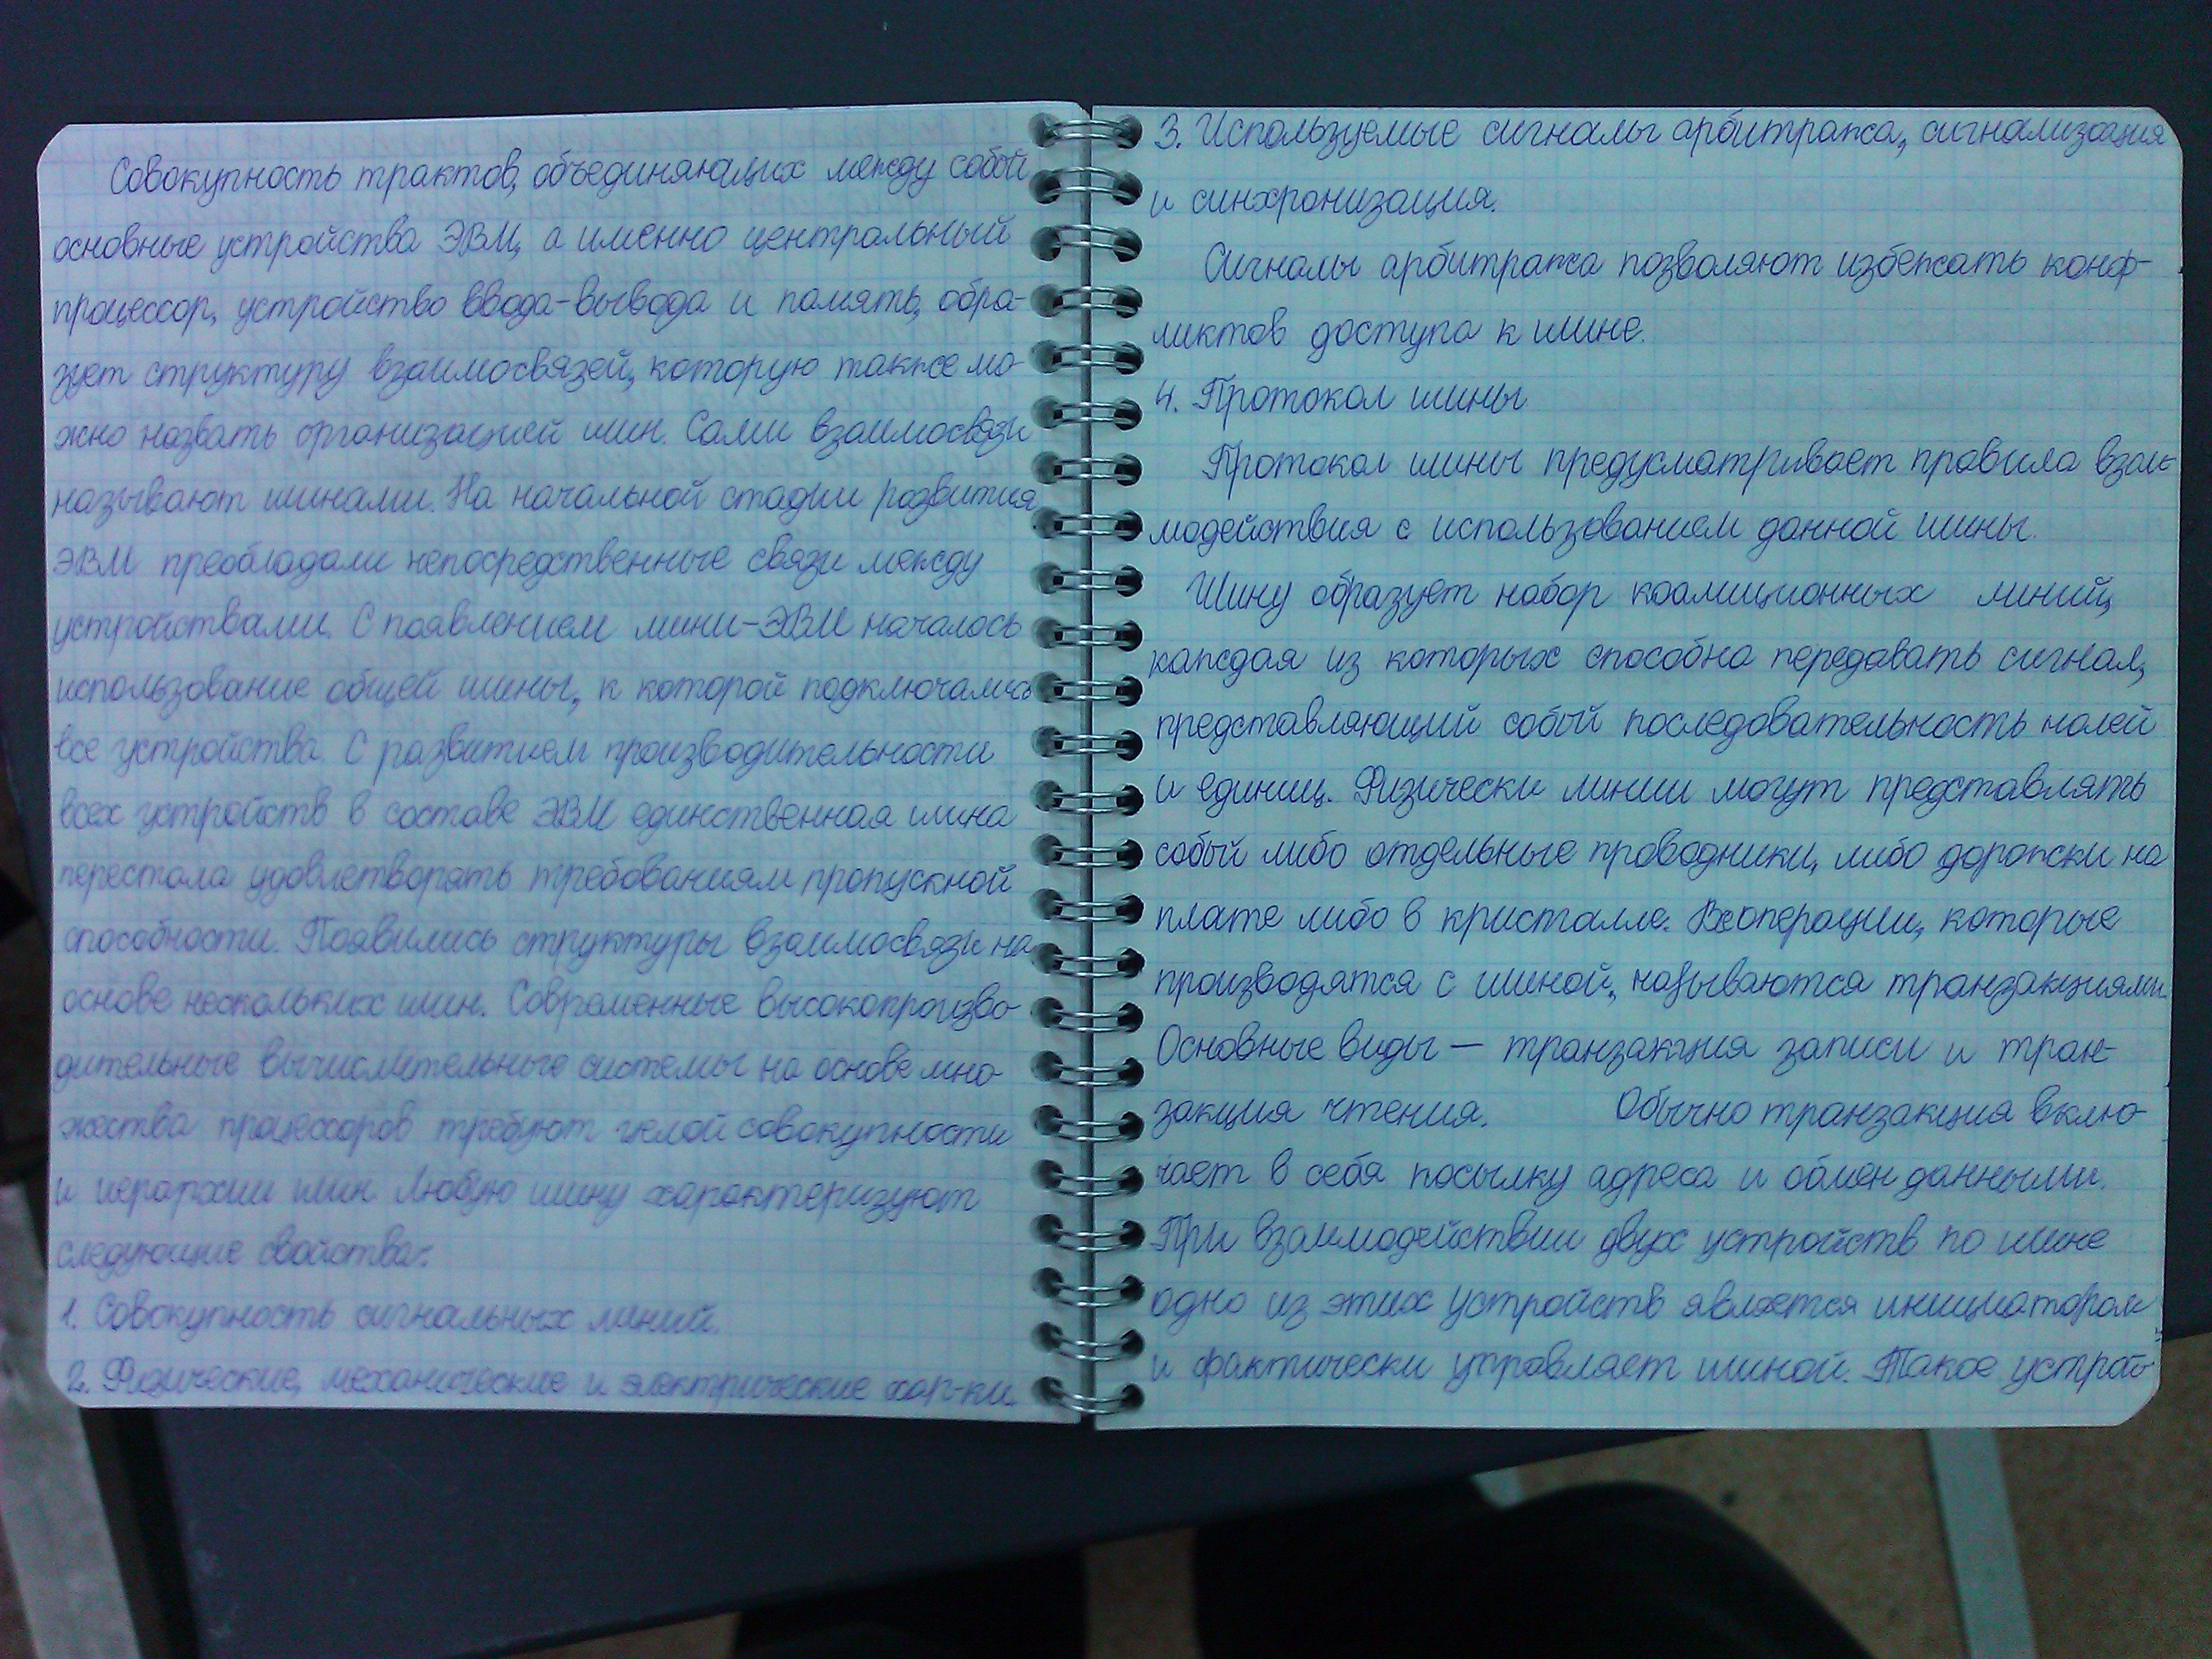 Совокупность трактов, объединяющих между собой
основные устройства ЭВМ, а именно центральный
процессор, устройство ввода-вывода и память, обра-
зует структуру взаимосвязей, которую также мо-
жно назвать организацией шин. Сами взаимосвязи
называют шинами. На начальной стадии развития
ЭВМ преобладали непосредственные связи между
устройствами. С появлением мини-ЭВМ началось
использование общей шины, к которой подключались
все устройства. С развитием производительности
всех устройств в составе ЭВМ единственная шина
перестала удовлетворять требованиям пропускной
способности. Появились структуры взаимосвязи на
основе нескольких шин. Современные высокопроизво-
дительные вычислительные системы на основе мно-
жества процессоров требуют целой совокупности
и иерархии шин. Любую шину характеризуют
следующие свойства:
1. Совокупность сигнальных линий.
2. Физические, механические и электрические хар-ки.
3. Используемые сигналы арбитража, сигнализация
и синхронизация.
Сигналы арбитража позволяют избежать конф-
ликтов доступа к шине.
4. Протокол шины
Протокол шины предусматривает правила взаи-
модействия с использованием данной шины.
Шину образует набор коалиционных линий,
каждая из которых способна передавать сигнал,
представляющий собой последовательность нолей
и единиц. Физически линии могут представлять
собый либо отдельные проводники, либо дорожки на
плате либо в кристалле. Все операции, которые
производятся с шиной, называются транзакциями.
Основные виды — транзакция записи и тран-
закция чтения. Обычно транзакция вклю-
чает в себя посылку адреса и обмен данными.
При взаимодействии двух устройств по шине
одно из этих устройств является инициатором
и фактически управляет шиной. Такое устрой-